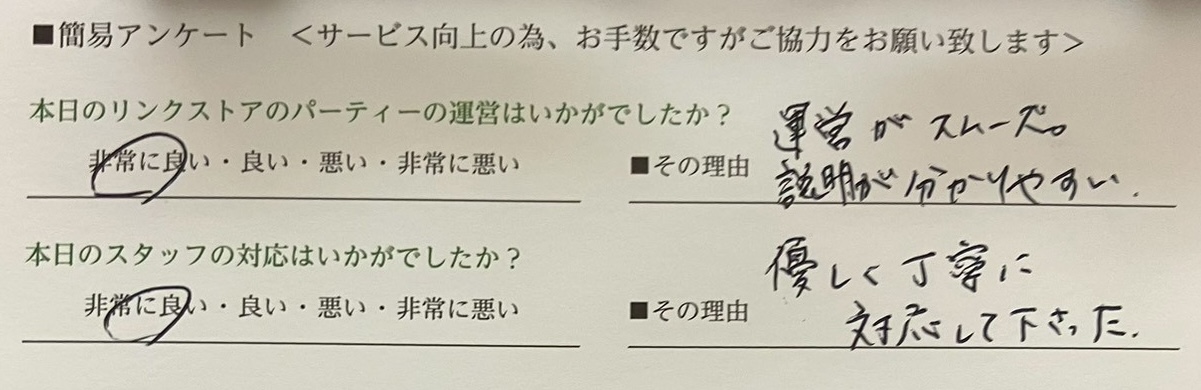 ■簡易アンケート ＜サービス向上の為、お手数ですがご協力をお願い致します＞
本日のリンクストアのパーティーの運営はいかがでしたか？
非常に良い・良い・悪い・非常に悪い
■その理由
運営がスムーズ。
説明が分かりやすい.
本日のスタッフの対応はいかがでしたか？
非常に良い・良い・悪い・非常に悪い
■その理由
優しく丁寧に
対応して下さった.